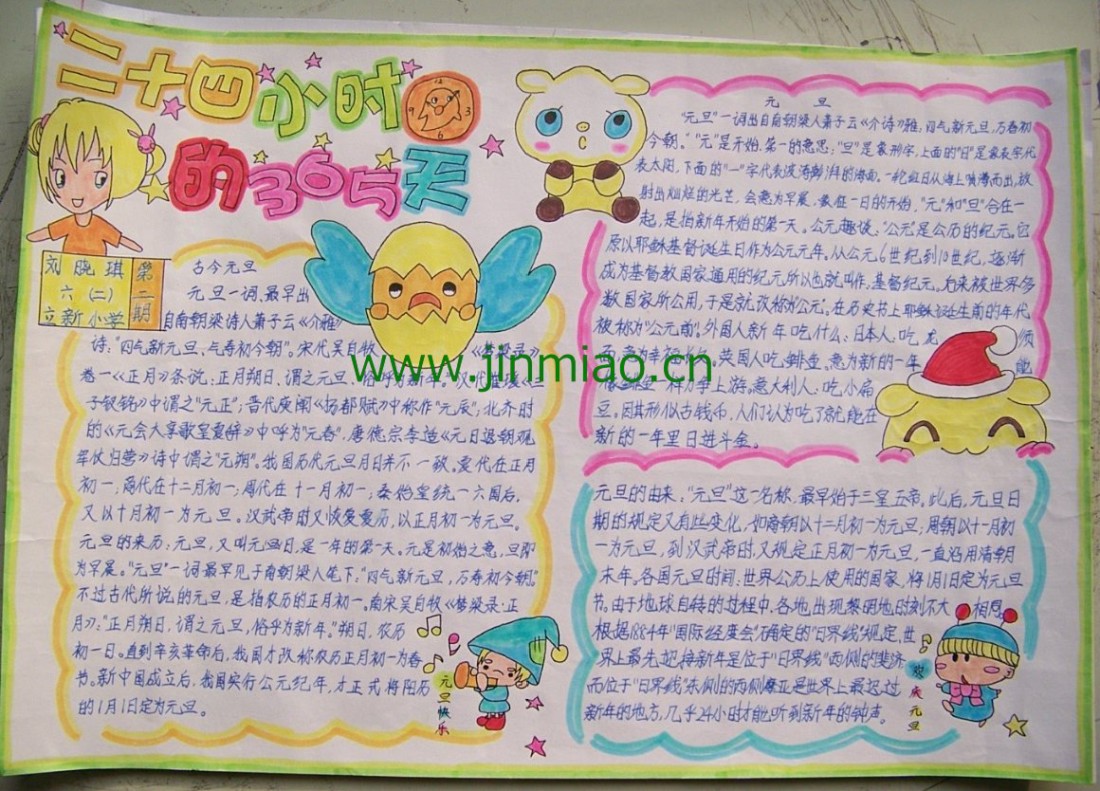 二十四小时
的365天
刘晓琪
六(二)
立新小学
第一期
古今元旦
元旦一词、最早出
自南朝梁诗人萧子云《介雅》
诗:"四气新元旦、万寿初今朝"。宋代吴自牧《梦粱录》
卷一《正月》条说:正月朔日、谓之元旦、俗呼为新年。汉代崔瑗《三
子钗铭》中谓之"元正";晋代庾阐《扬都赋》中称作"元辰";北齐时
的《元会大享歌皇夏辞》中呼为"元春",唐德宗李适《元日退朝观
军仗归营》诗中谓之"元朔"。我国历代元旦月日并不一致。夏代在正月
初一,商代在十二月初一;周代在十一月初一;秦始皇统一六国后,
又以十月初一为元旦。汉武帝时又恢复夏历,以正月初一为元旦。
元旦的来历:元旦,又叫元旦日,是一年的第一天。元是初始之意,旦即
为早晨。"元旦"一词最早见于南朝梁人笔下:"四气新元旦,万寿初今朝。"
不过古代所说的元旦,是指农历的正月初一。南宋吴自牧《梦粱录·正
月》:"正月朔日,谓之元旦,俗乎为新年。"朔日,农历
初一日。直到辛亥革命后,我国才改称农历正月初一为春
节。新中国成立后,我国实行公元纪年,才正式将阳历
的1月1日定为元旦。
元旦快乐
元旦
"元旦"一词出自南朝梁人萧子云《介诗》雅:四气新元旦,万春初
今朝。"元"是开始,第一的意思;"旦"是象形字,上面的"日"是象表字代
表太阳,下面的"一"字代表波涛澎湃的海面,一轮红日从海上喷薄而出,放
射出灿烂的光芒,会意为早晨、象征一日的开始,"元"和"旦"合在一
起,是指新年开始的第一天。公元趣谈:"公元"是公历的纪元。它
原以耶稣基督诞生日作为公元元年,从公元6世纪到10世纪,逐渐
成为基督教国家通用的纪元所以也就叫作,基督纪元,后来被世界多
数国家所公用,于是就改称"公元",在历史书上耶稣诞生前的年代
被称为"公元前"。外国人新年吃什么:日本人:吃龙须
面,意为幸福长久。英国人吃鲜鱼,意为新的一年能
像鲜鱼一样力争上游。意大利人:吃小扁
豆。因其形似古钱币,人们认为吃了就能在
新的一年里日进斗金。
元旦的由来:"元旦"这一名称,最早始于三皇五帝。此后,元旦日
期的规定又有些变化,如商朝以十二月初一为元旦;周朝以十一月初
一为元旦,到汉武帝时,又规定正月初一为元旦,一直沿用清朝
末年。各国元旦时间:世界公历上使用的国家,将1月1日定为元旦
节。由于地球自转的过程中,各地出现黎明地时刻不大相同。
根据1884年"国际经度会"确定的"日界线"规定,世
界上最先迎接新年是位于"日界线"西侧的斐济
而位于"日界线"东侧的西侧摩亚是世界上最迟过
新年的地方,几乎24小时才能听到新年的钟声。
欢庆元旦
www.jinmiao.cn